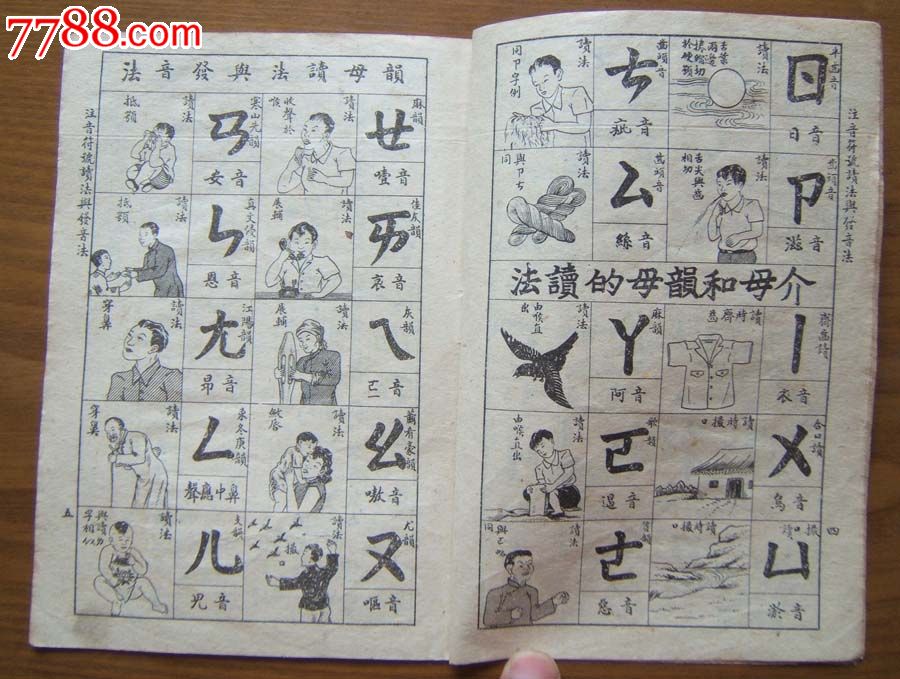 7788.com
注音符號讀法與發音法
四
ㄖ
音日
讀法
ㄘ
齒頭音
音疵
讀法
同ㄗ字例
ㄗ
齒頭音
音滋
讀法
舌尖與齒相切
ㄙ
齒頭音
音絲
讀法
與ㄗㄘ同
介母和韻母的讀法
ㄧ
齊齒讀
音衣
讀時齊齒
ㄚ
麻韻
音阿
讀法
由喉直出
ㄨ
合口讀
音烏
讀時撮口
ㄛ
歌韻
讀法
由喉直出
ㄩ
撮口讀
音淤
讀時撮口
ㄜ
讀法
韻母讀法與發音法
ㄝ
麻韻
音噎
讀法
收聲於喉
ㄢ
寒山先韻
音安
讀法
抵顎
ㄞ
佳灰韻
音哀
讀法
展輔
ㄣ
真文侵韻
音恩
讀法
抵顎
ㄟ
灰韻
讀法
展輔
ㄤ
江陽韻
音昂
讀法
穿鼻
ㄠ
蕭肴豪韻
音嗷
讀法
斂唇
ㄥ
東冬庚韻
鼻中應聲
讀法
穿鼻
ㄡ
尤韻
音嘔
讀法
撮
ㄦ
支韻
音兒
讀法
注音符號讀法與發音法
五